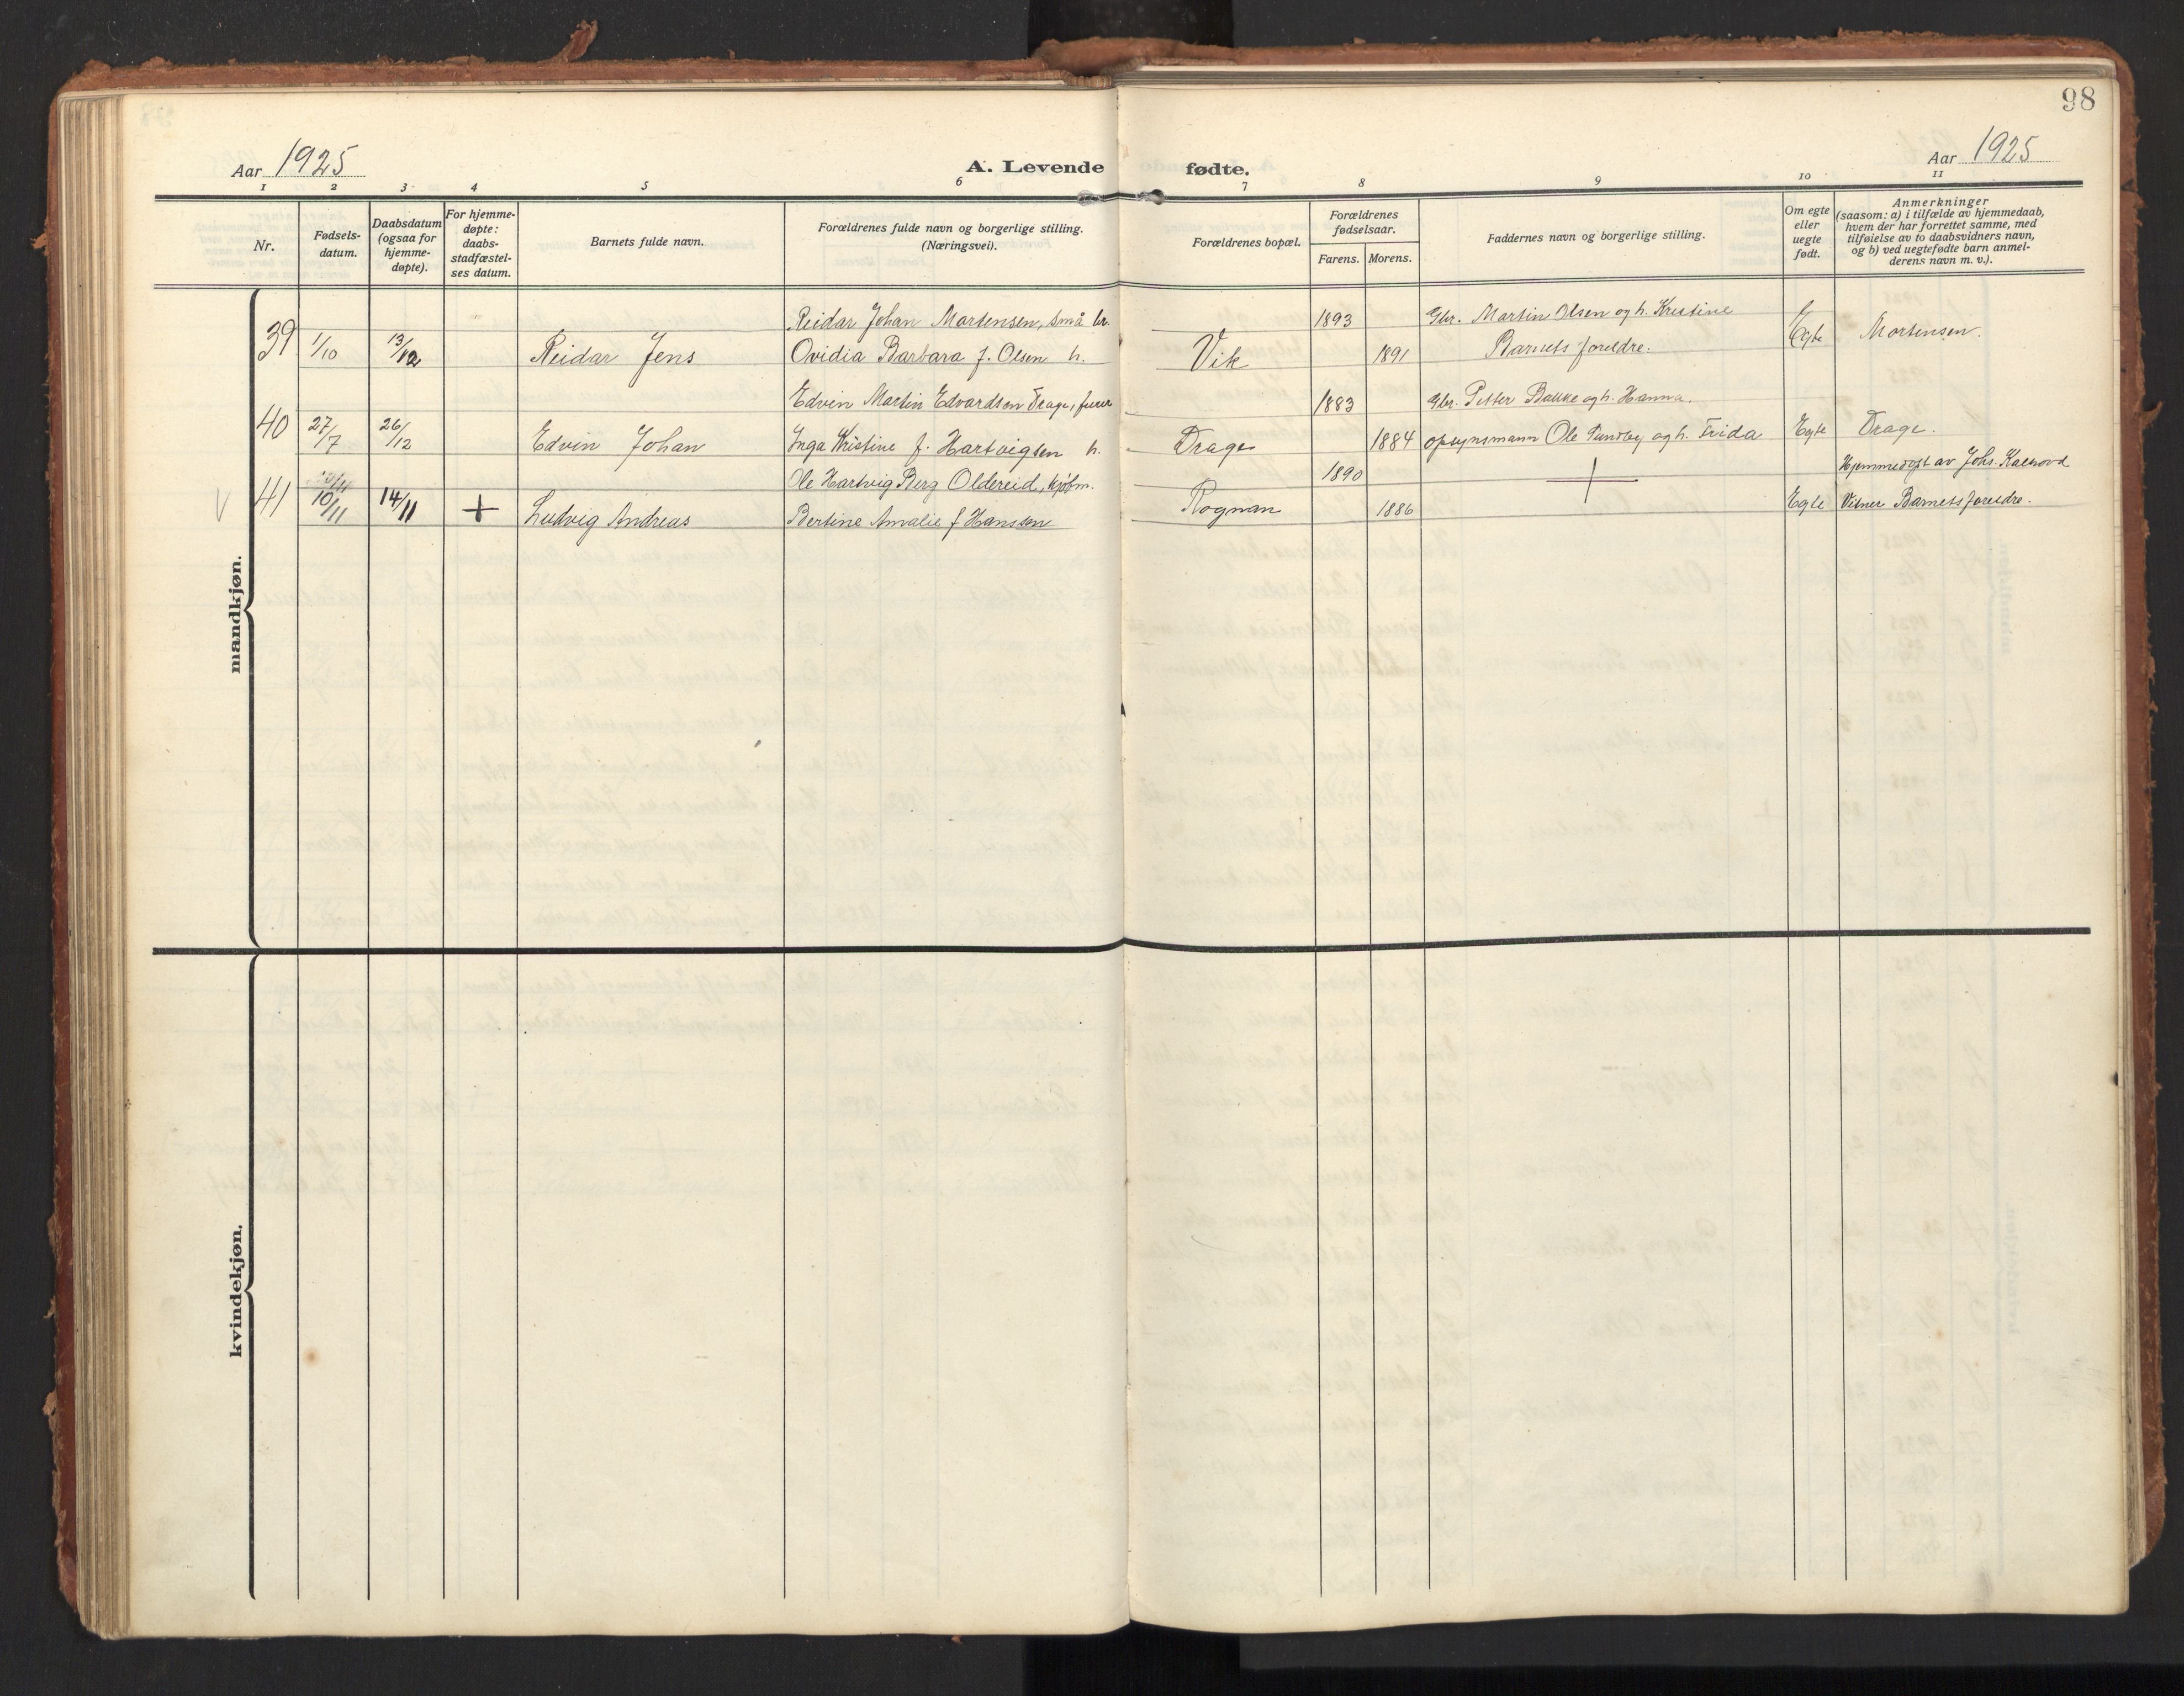 98
Aar 1925
A. Levende fødte.
Aar 1925
1 2 3 4 5 6 7 8 9 10 11
Nr.
Fødsels-
datum.
Daabsdatum
(ogsaa for
hjemme-
døpte).
For hjemme-
døpte:
daabs-
stadfæstel-
ses datum.
Barnets fulde navn.
Forældrenes fulde navn og borgerlige stilling.
(Næringsvei).
Forældrenes bopæl.
Forældrenes
fødselsaar.
Farens. Morens.
Faddernes navn og borgerlige stilling.
Om egte
eller
uegte
født.
Anmerkninger
(saasom: a) i tilfælde av hjemmedaab,
hvem der har forrettet samme, med
tilføielse av to daabsvidners navn,
og b) ved uegtefødte barn anmel-
derens navn m. v.).
mandkjøn.
Reidar Johan Mortensen, små br. 1893 Gbr. Martin Olsen og h. Kristine
39 1/10 13/12 Reidar Jens Ovidia Barbara f. Olsen h. Vik 1891 Barnets foreldre. Egte Mortensen.
Edvin Martin Edvardsen Drage, furer 1883 Gbr. Petter Bakke og h. Hanna.
40 27/7 26/12 Edvin Johan Inga Kristine f. Hartvigsen h. Drage 1884 opsynsmann Ole og h. Frida Egte Drage.
Ole Hartvig Berg Oldereid, kjøbm. 1890 Hjemmedøpt av Johs.
V 41 10/11 14/11 + Ludvig Andreas Bertine Amalie f Hanssen Rognan 1886 + Egte Vitner Barnets foreldre.
kvindekjøn.